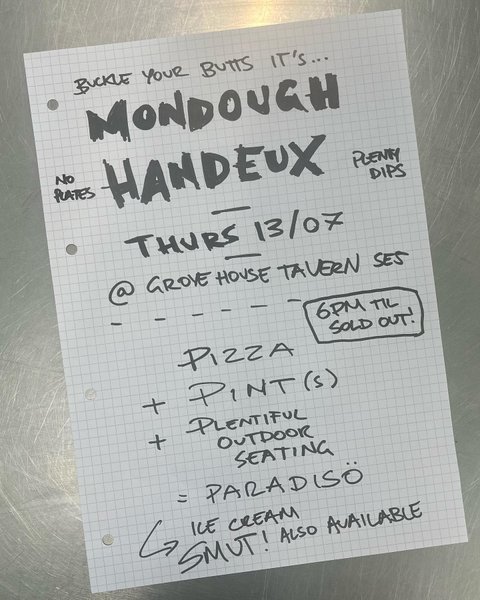 BUCKLE YOUR BUTTS IT'S...
MONDOUGH
HANDEUX
NO
PLATES
PLENTY
DIPS
THURS 13/07
@ GROVE HOUSE TAVERN SE5
6PM TIL
SOLD OUT!
PIZZA
+ PINT(S)
+ PLENTIFUL
OUTDOOR
SEATING
= PARADISÖ
ICE CREAM
SMUT! ALSO AVAILABLE